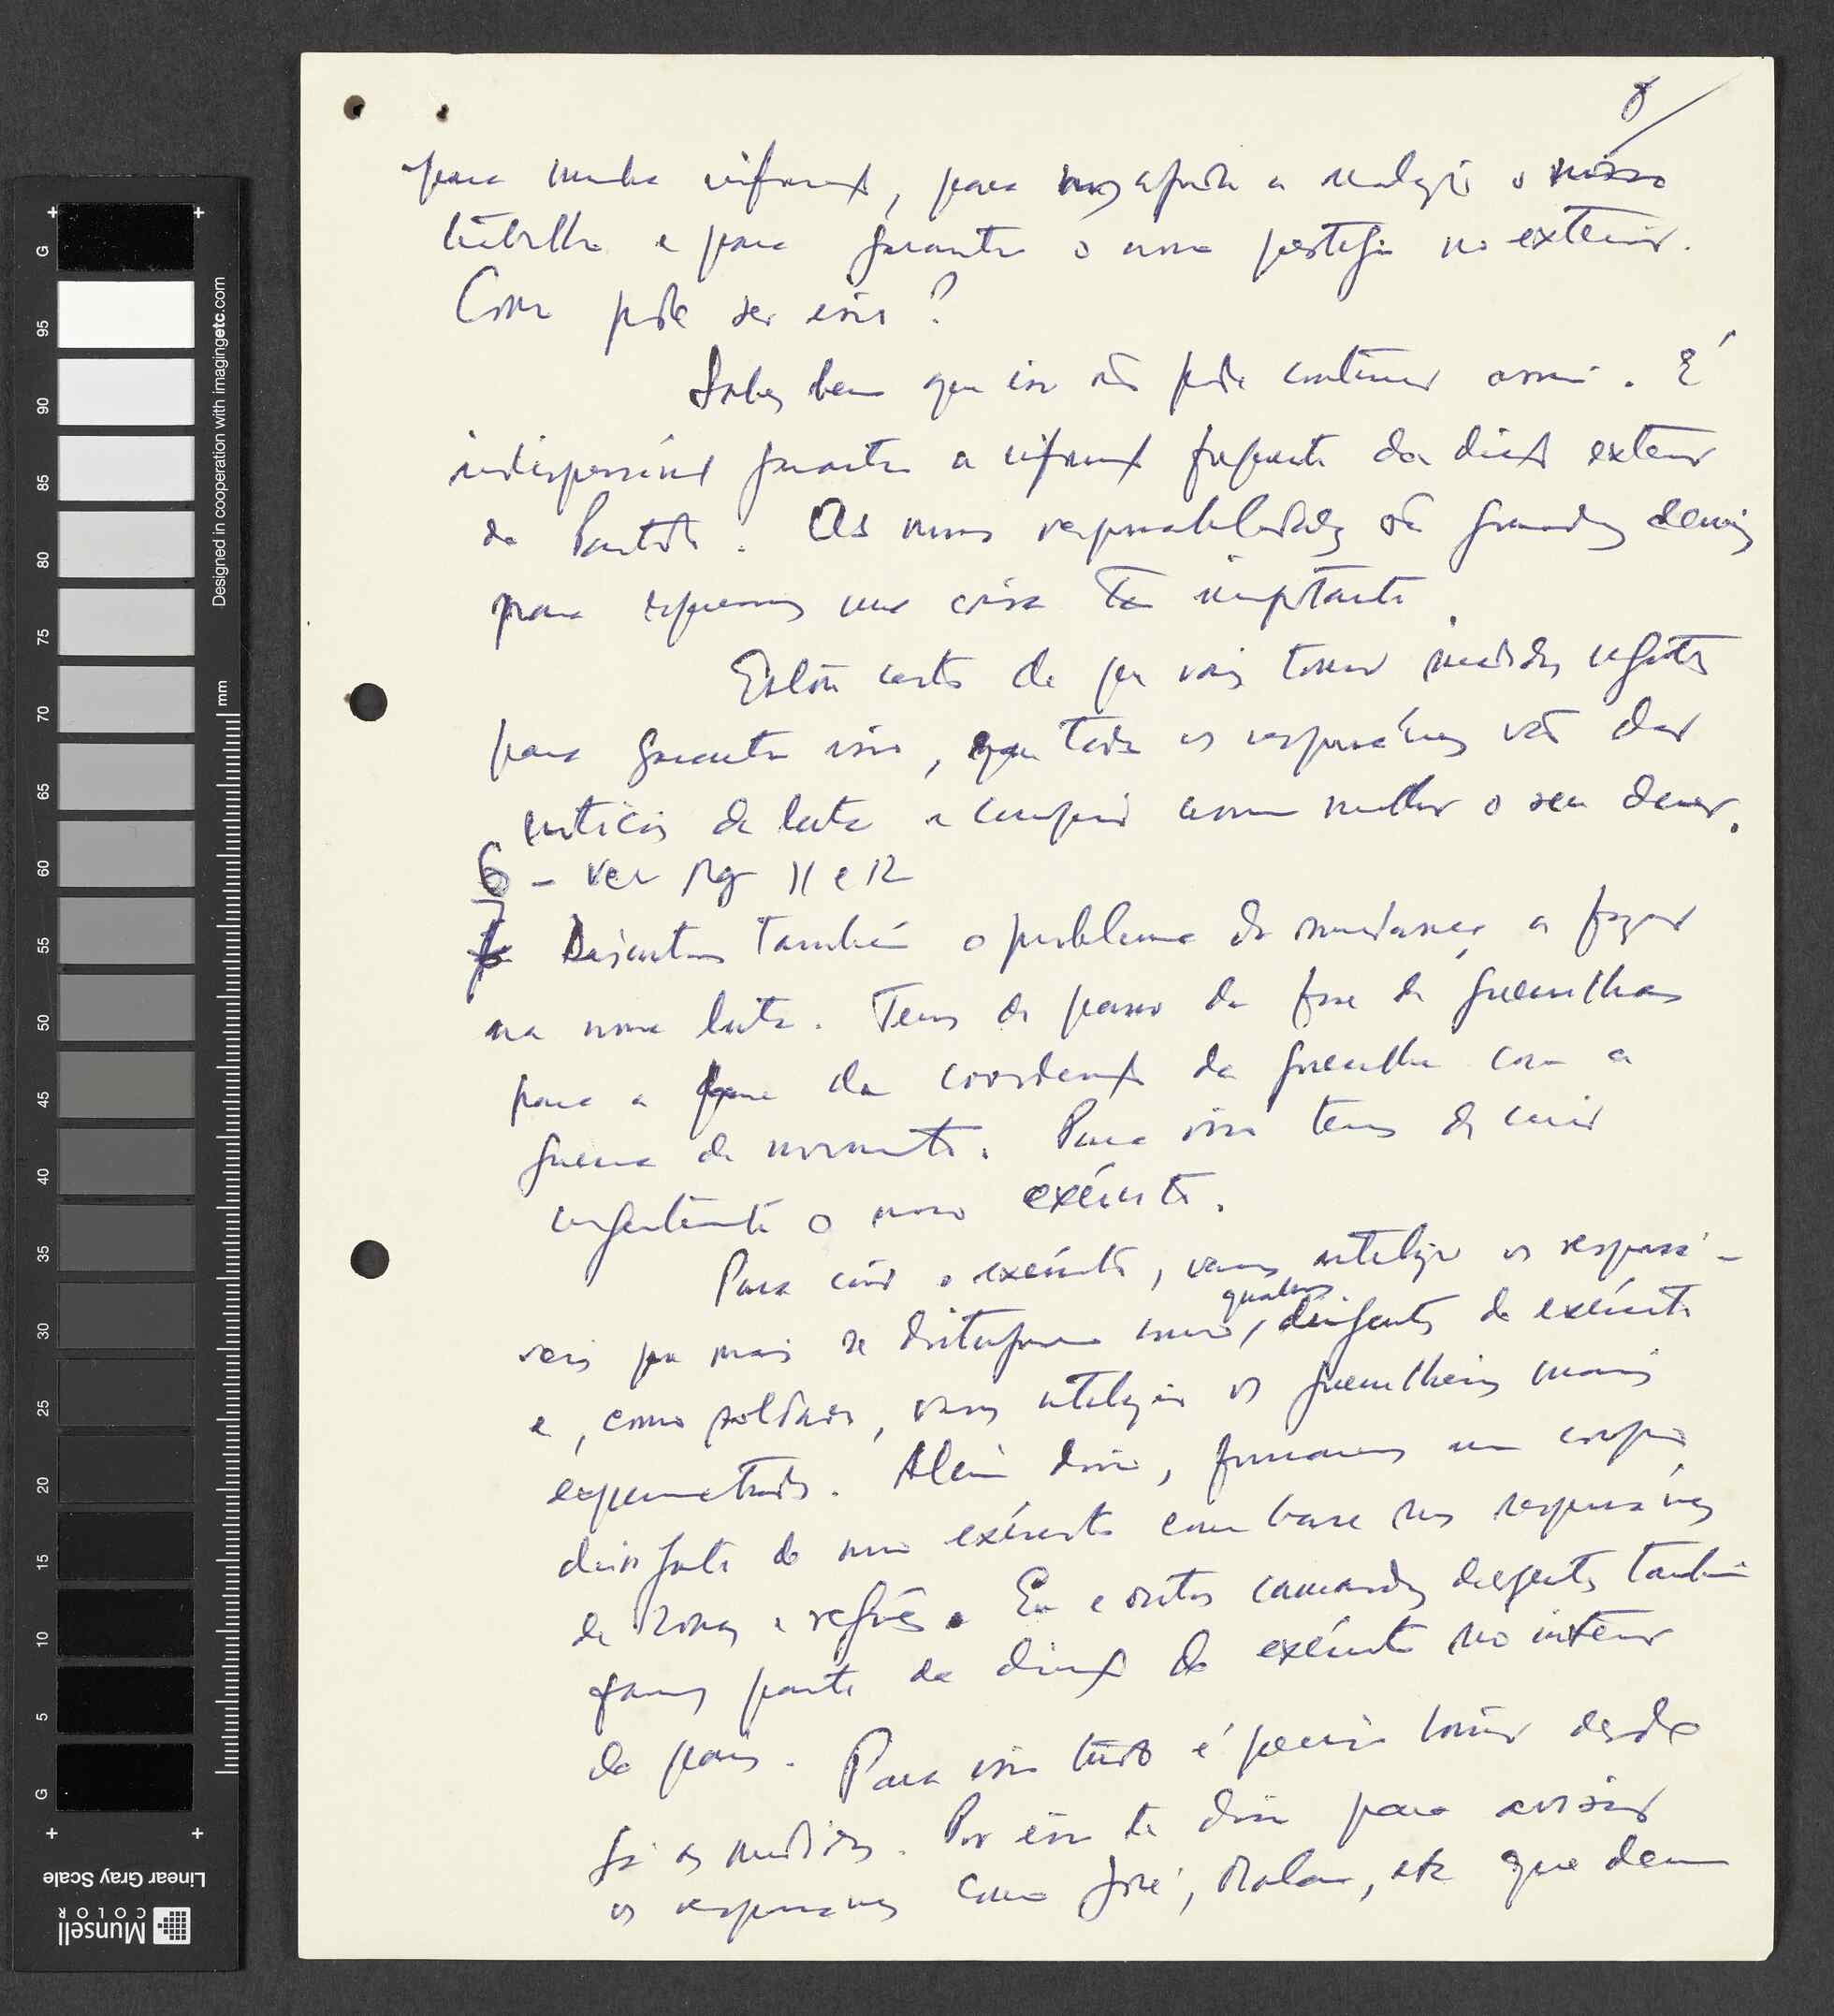 8/
para minha informação, para nos ajudar a realizar o nosso
trabalho e para garantir o nosso prestígio no exterior.
Como pode ser isso?
Sabes bem que isso não pode continuar assim. É
indispensável garantir a informação frequente da direcção exterior
do Partido. As nossas responsabilidades são grandes demais
para esquecermos uma coisa tão importante.
Estou certo de que vais tomar medidas urgentes
para garantir isso, que todos os responsáveis vão dar
notícias da luta e cumprir assim melhor o seu dever.
6 - ver pág 11 e 12
7 Discutimos também o problema da mudança a fazer
na nossa luta. Temos de passar da fase de guerrilhas
para a fase da coordenação da guerrilha com a
guerra de movimento. Para isso temos de criar
urgentemente o nosso exército.
Para criar o exército, vamos utilizar os responsá-
veis que mais se distinguiram como quadros dirigentes do exército
e, como soldados, vamos utilizar os guerrilheiros mais
experimentados. Além disso, formaremos um corpo
dirigente do nosso exército com base nos responsáveis
de zonas e regiões. Eu e outros camaradas dirigentes também
fazemos parte da direcção do exército no interior
do país. Para isso tudo é preciso tomar desde
já as medidas. Por isso te disse para avisar
os responsáveis como José, Malam, etc que devem